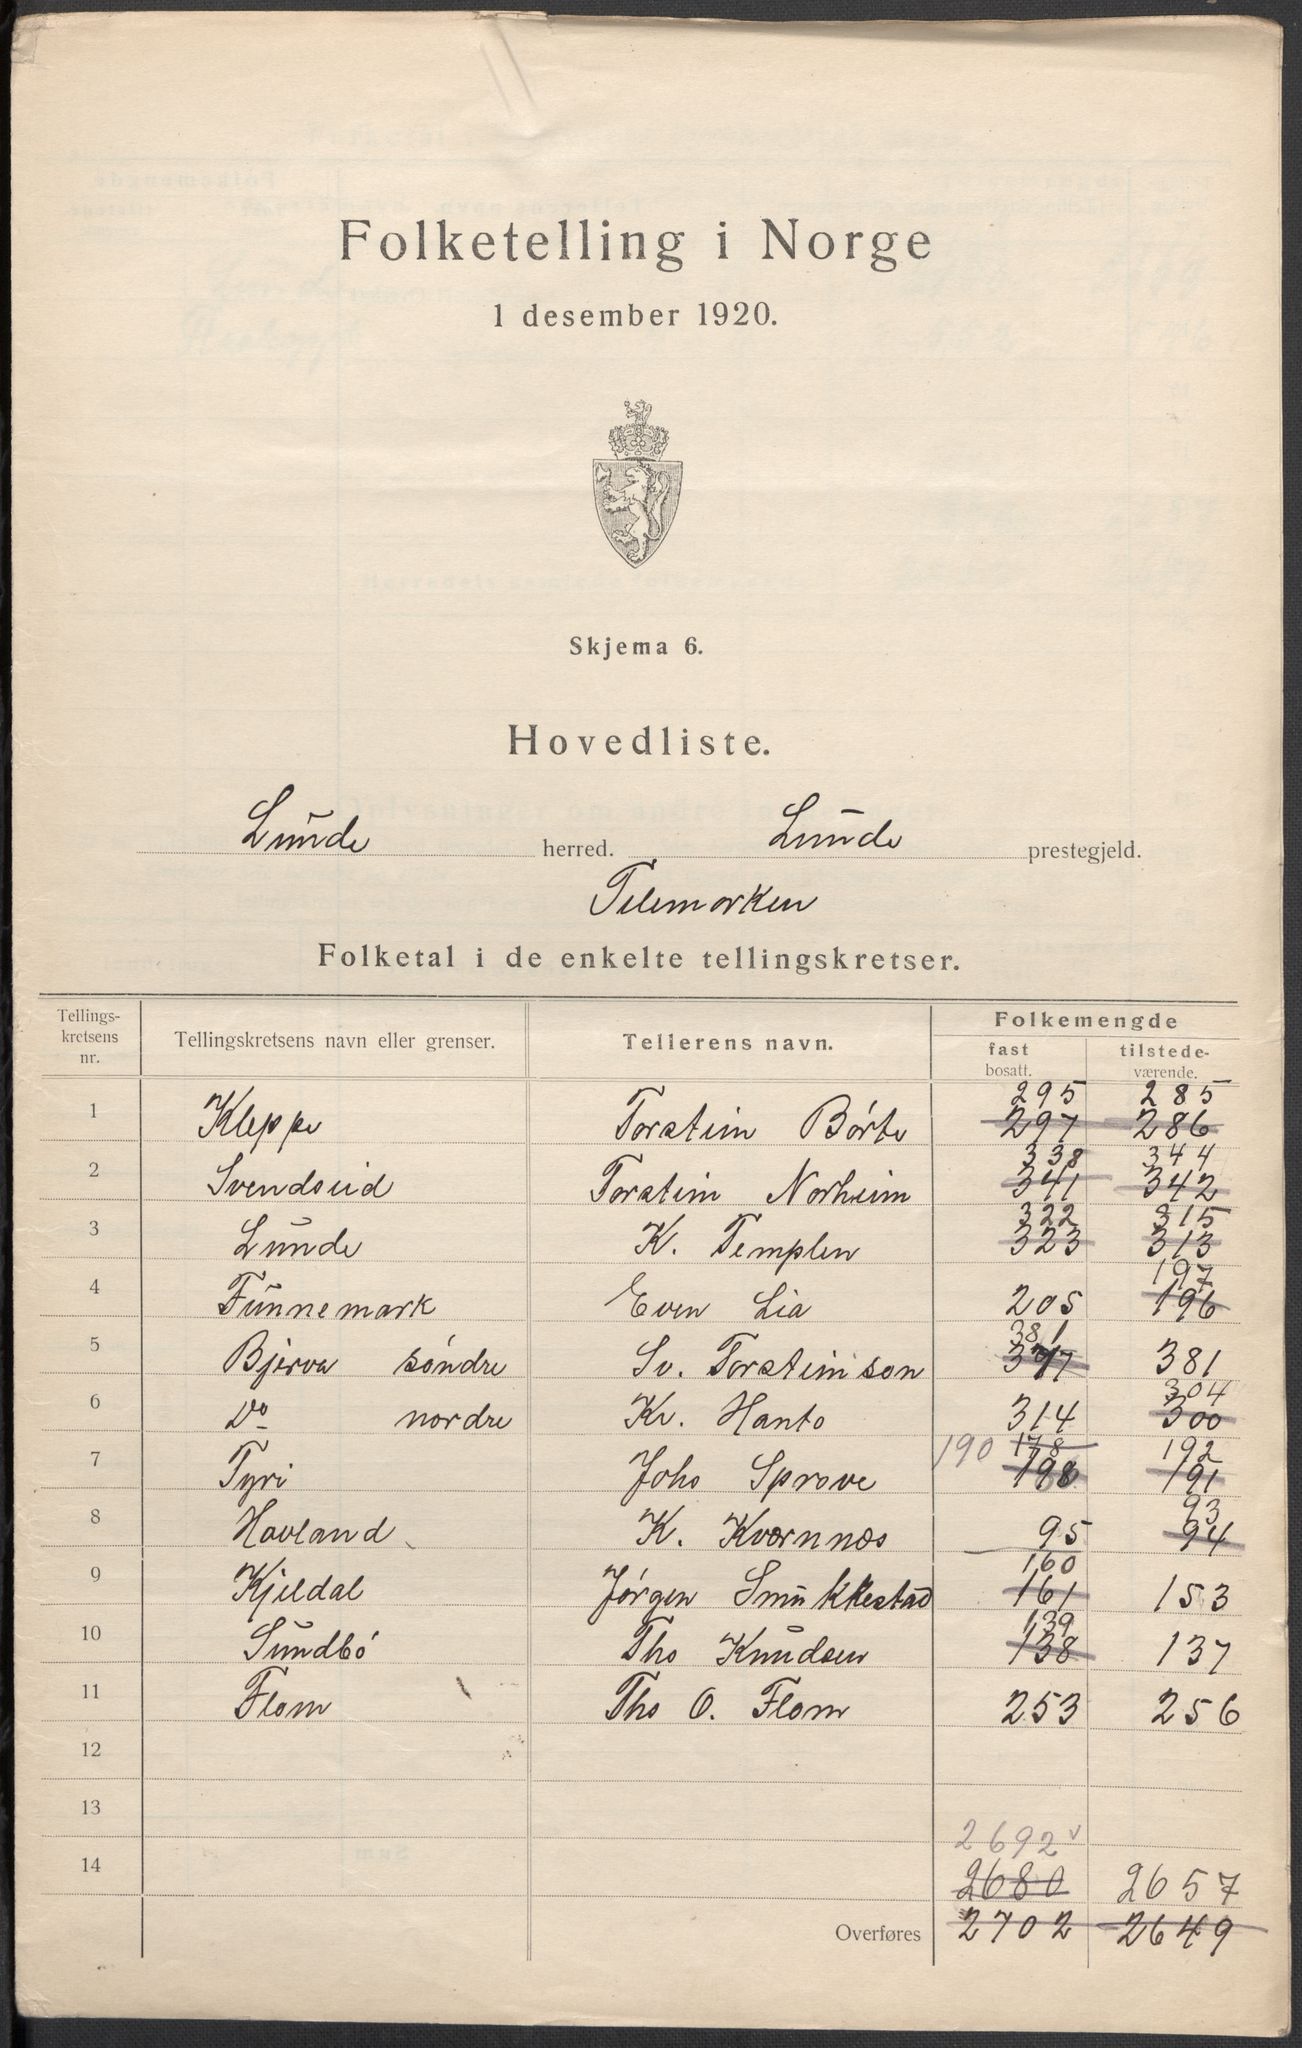 Folketelling i Norge
1 desember 1920.
Skjema 6.
Hovedliste.
Lunde herred. Lunde prestegjeld.
Telemarken
Folketal i de enkelte tellingskretser.
Tellings-kretsens nr. Tellingskretsens navn eller grenser. Tellerens navn. Folkemengde fast bosatt. tilstede-værende.
295 285
1 Kleppe Torstein Børte 297 286
338 344
2 Svendseid Torstein Norheim 341 342
322 315
3 Lunde K. Templen 323 313
197
4 Funnemark Even Lia 205 196
381
5 Bjerva søndre Sv. Torsteinson 377 381
304
6 Do nordre Kr. Hanto 314 300
190 178 192
7 Tyri Johs Sprove 198 191
93
8 Havland K. Kværnnæs 95 94
160
9 Kjeldal Jørgen Smukkestad 161 153
139
10 Sundbö Ths Knudsen 138 137
11 Flom Ths O. Flom 253 256
12
13
2692 v
14 2680 2657
Overføres 2702 2649